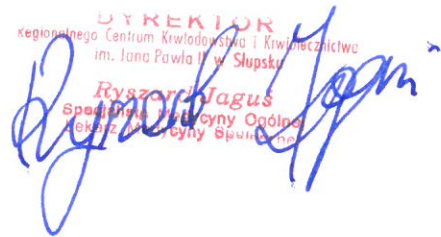 DYREKTOR
Regionalnego Centrum Krwiodawstwa i Krwiolecznictwa
im. Jana Pawła II w Słupsku
Ryszard Jaguś
Specjalista Medycyny Ogólnej
Lekarz Medycyny Społecznej